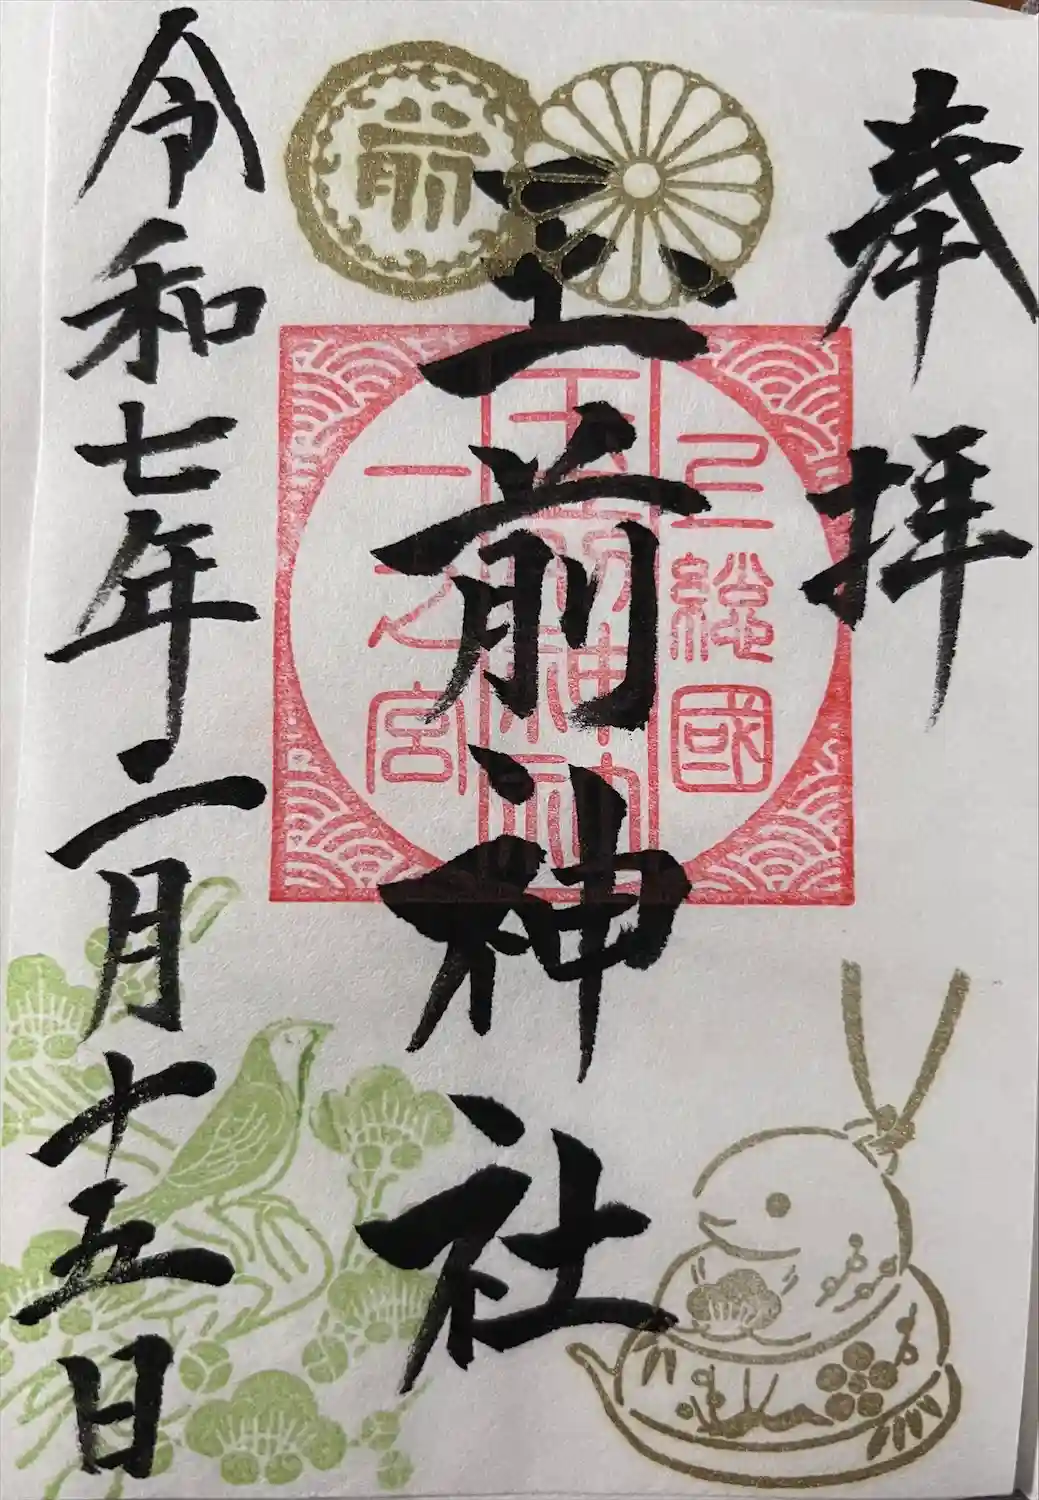 奉拝
上総國
玉前神社
一之宮
玉前神社
令和七年二月十五日